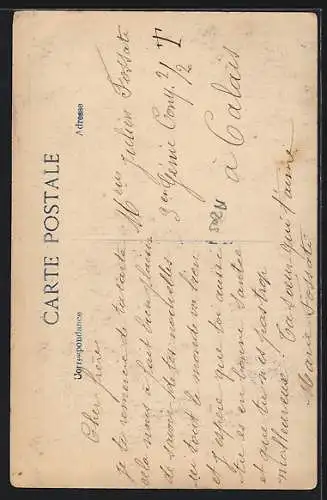 CARTE POSTALE
Correspondance
Adresse
Cher frère
Je te remercie de ta carte
cela nous a fait bien plaisir
de savoir de tes nouvelles
ici tout le monde va bien
et j'espère que toi aussi
tu es en bonne santé
et que tu n'es pas trop
malheureux. Ta sœur qui t'aime
Marie Fossate
Mr Julien Fossate
3 en Génie Comp. 7/2 T
à Calais